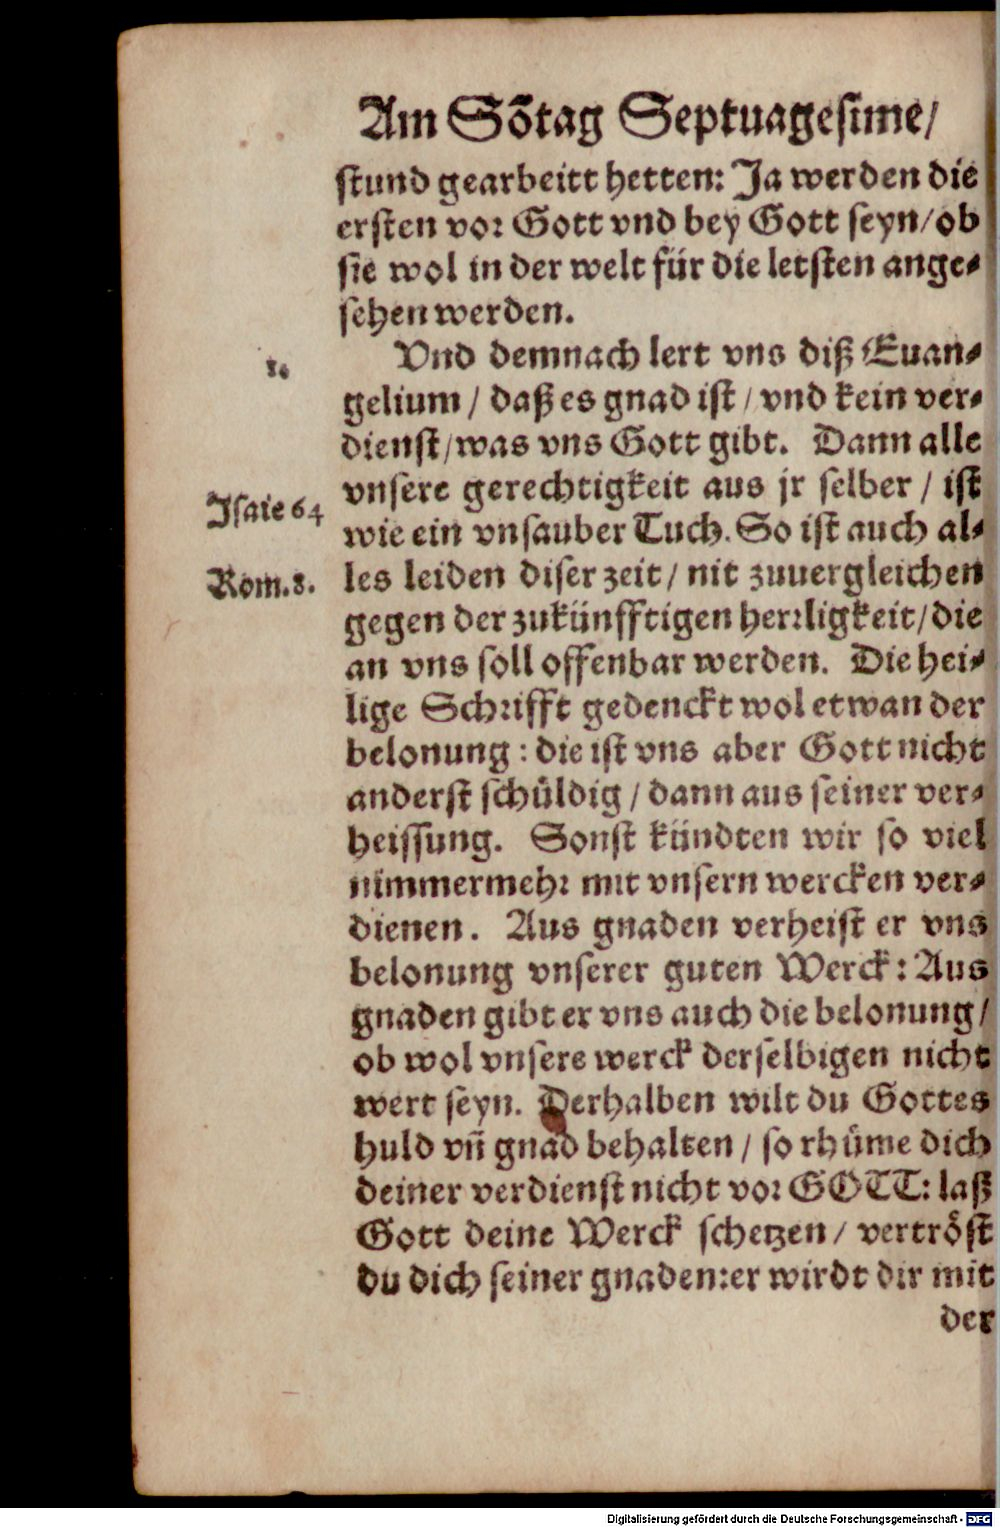 Am Sõtag Septuagesime/
stund gearbeitt hetten: Ja werden die
ersten vor Gott vnd bey Gott seyn/ob
sie wol in der welt für die letsten ange-
sehen werden.
1.
Vnd demnach lert vns diß Euan-
gelium / daß es gnad ist / vnd kein ver-
dienst/was vns Gott gibt. Dann alle
vnsere gerechtigkeit aus jr selber / ist
Isaie 64
wie ein vnsauber Tuch. So ist auch al-
Rom.8.
les leiden diser zeit / nit zuuergleichen
gegen der zukünfftigen herrligkeit/die
an vns soll offenbar werden. Die hei-
lige Schrifft gedenckt wol etwan der
belonung : die ist vns aber Gott nicht
anderst schüldig / dann aus seiner ver-
heissung. Sonst kündten wir so viel
nimmermehr mit vnsern wercken ver-
dienen. Aus gnaden verheist er vns
belonung vnserer guten Werck : Aus
gnaden gibt er vns auch die belonung/
ob wol vnsere werck derselbigen nicht
wert seyn. Derhalben wilt du Gottes
huld vñ gnad behalten / so rhüme dich
deiner verdienst nicht vor GOTT: laß
Gott deine Werck schetzen / vertröst
du dich seiner gnaden:er wirdt dir mit
der
Digitalisierung gefördert durch die Deutsche Forschungsgemeinschaft - DFG